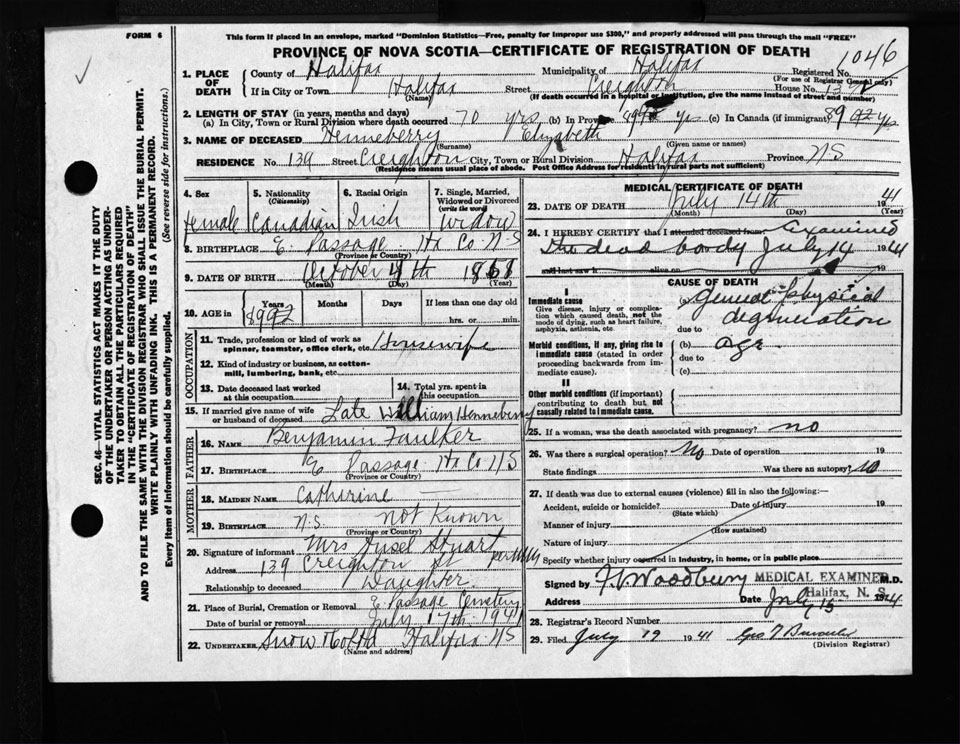 FORM 6
This form if placed in an envelope, marked "Dominion Statistics—Free, penalty for improper use $300," and properly addressed will pass through the mail "FREE"
PROVINCE OF NOVA SCOTIA—CERTIFICATE OF REGISTRATION OF DEATH
1046
1. PLACE OF DEATH
County of Halifax Municipality of Halifax Registered No.
(For use of Registrar General only)
If in City or Town Halifax Street Creighton House No. 139
(Name) (If death occurred in a hospital or institution, give the name instead of street and number)
2. LENGTH OF STAY (in years, months and days)
(a) In City, Town or Rural Division where death occurred 70 yrs (b) In Province yrs (c) In Canada (if immigrant) 89 yrs
3. NAME OF DECEASED Henneberry Elizabeth
(Surname) (Given name or names)
RESIDENCE No. 139 Street Creighton City, Town or Rural Division Halifax Province NS
(Residence means usual place of abode. Post Office Address for residents in rural parts not sufficient)
4. Sex Female
5. Nationality (Citizenship) Canadian
6. Racial Origin Irish
7. Single, Married, Widowed or Divorced (write the word) Widow
8. BIRTHPLACE E. Passage Hx Co N-S
(Province or Country)
9. DATE OF BIRTH October 4th 18
(Month) (Day) (Year)
10. AGE in Years Months Days If less than one day old
hrs. or min.
OCCUPATION
11. Trade, profession or kind of work as spinner, teamster, office clerk, etc. Housewife
12. Kind of industry or business, as cotton-mill, lumbering, bank, etc.
13. Date deceased last worked at this occupation
14. Total yrs. spent in this occupation
15. If married give name of wife or husband of deceased Late William Henneberry
FATHER
16. NAME Benjamin Faulker
17. BIRTHPLACE E Passage Hx Co NS
(Province or Country)
MOTHER
18. MAIDEN NAME Catherine —
19. BIRTHPLACE N.S. not Known
(Province or Country)
20. Signature of informant Mrs Stuart
Address 139 Creighton st
Relationship to deceased Daughter
21. Place of Burial, Cremation or Removal E Passage Cemetery
Date of burial or removal July 17th 1941
22. UNDERTAKER Snow & Co Ltd Halifax NS
(Name and address)
MEDICAL CERTIFICATE OF DEATH
23. DATE OF DEATH July 14th 1941
(Month) (Day) (Year)
24. I HEREBY CERTIFY that I attended deceased from Examined
the dead body July 14 1941
and last saw h alive on 19
CAUSE OF DEATH
I
Immediate cause
Give disease, injury or complication which caused death, not the mode of dying, such as heart failure, asphyxia, asthenia, etc.
(a) General physical degeneration
due to
Morbid conditions, if any, giving rise to immediate cause (stated in order proceeding backwards from immediate cause).
(b) age
due to
(c)
II
Other morbid conditions (if important) contributing to death but not causally related to immediate cause.
25. If a woman, was the death associated with pregnancy? no
26. Was there a surgical operation? No Date of operation 19
State findings Was there an autopsy? No
27. If death was due to external causes (violence) fill in also the following:—
Accident, suicide or homicide? Date of injury 19
(State which)
Manner of injury
(How sustained)
Nature of injury
Specify whether injury occurred in industry, in home, or in public place
Signed by Woodbury MEDICAL EXAMINER M.D.
Halifax, N. S.
Address Date July 15 1941
28. Registrar's Record Number
29. Filed July 19 1941 Geo
(Division Registrar)
SEC. 46—VITAL STATISTICS ACT MAKES IT THE DUTY
OF THE UNDERTAKER OR PERSON ACTING AS UNDER-
TAKER TO OBTAIN ALL THE PARTICULARS REQUIRED
IN THE "CERTIFICATE OF REGISTRATION OF DEATH"
AND TO FILE THE SAME WITH THE DIVISION REGISTRAR WHO SHALL ISSUE THE BURIAL PERMIT.
WRITE PLAINLY WITH UNFADING INK. THIS IS A PERMANENT RECORD.
Every item of information should be carefully supplied. (See reverse side for instructions.)